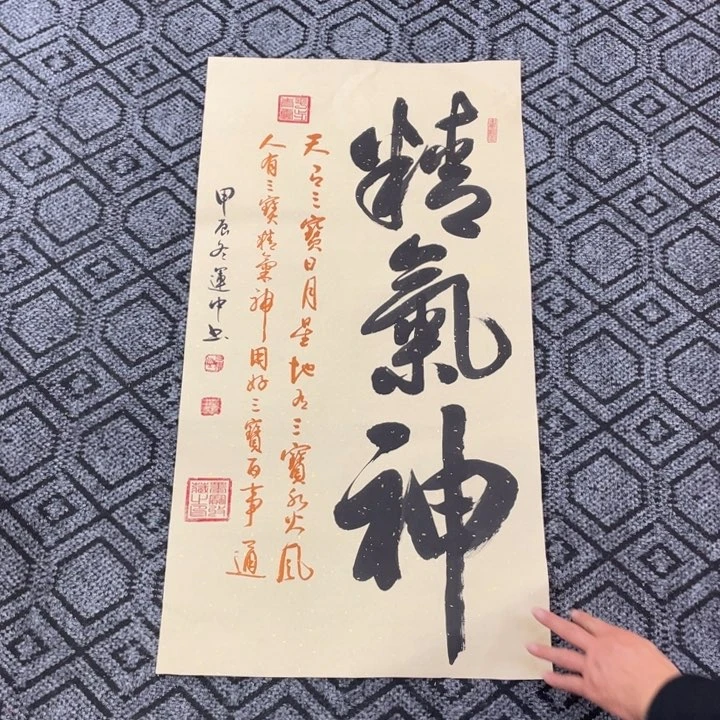 精氣神
天有三寶日月星地有三寶水火風
人有三寶精氣神用好三寶百事通
甲辰冬運中书